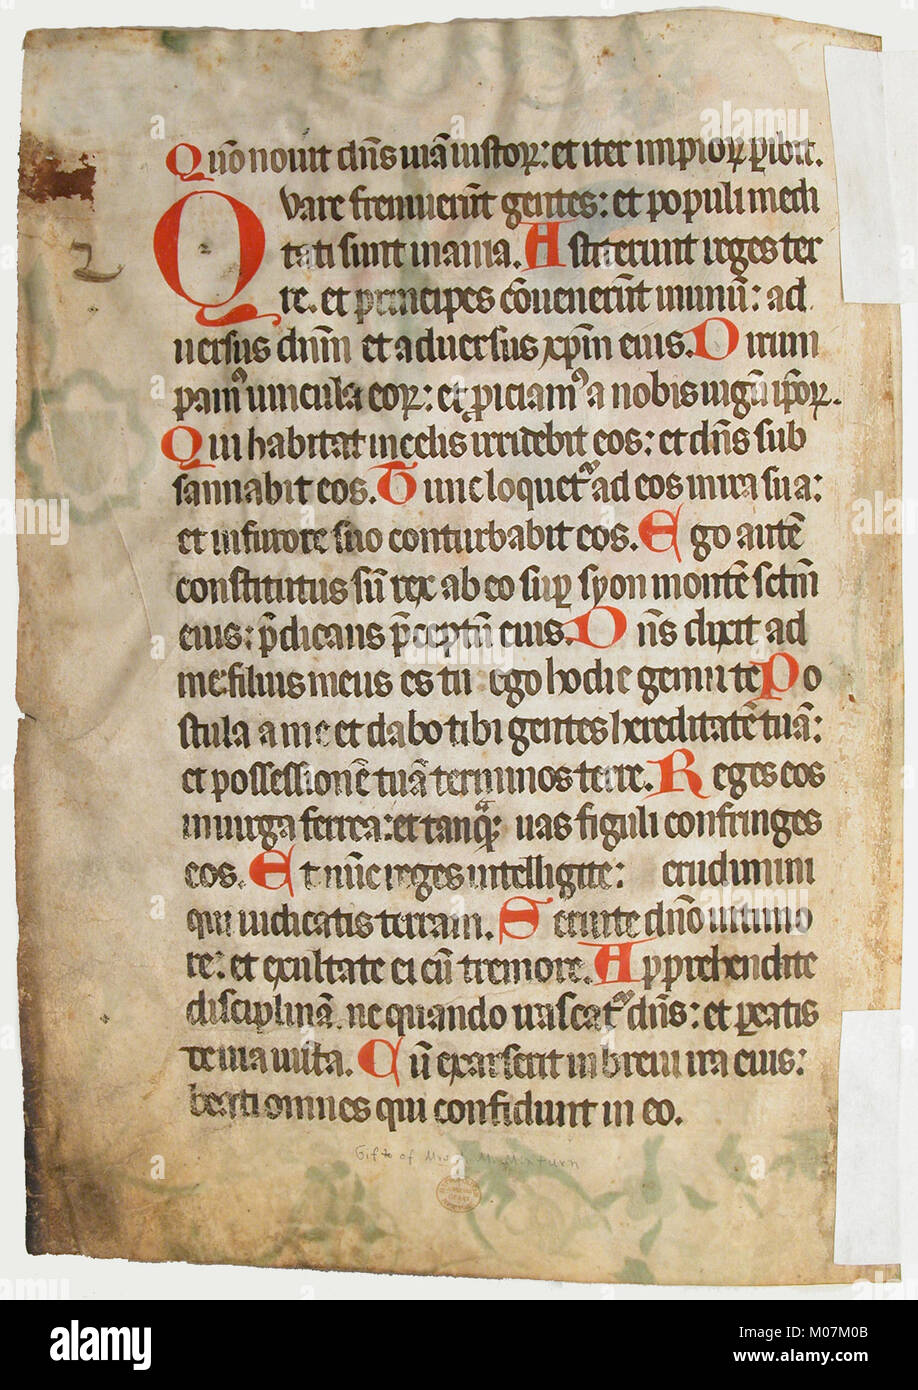 Qm̄ novit dn̄s viā iustoꝝ: et iter impioꝝ ꝑibit.
Quare fremuerūt gentes: et populi medi
tati sunt inania. Astiterunt reges ter
re. et principes cōvenerūt in unū: ad
versus dn̄m et adversus xp̄m eius. Dirum
pamꝰ vincula eoꝝ: et ꝓiciamꝰ a nobis iugū ip̄oꝝ.
Qui habitat in celis irridebit eos: et dn̄s sub
sannabit eos. Tunc loquet᷑ ad eos in ira sua:
et in furore suo conturbabit eos. Ego autē
constitutus sū rex ab eo suꝑ syon montē sc̄tm̄
eius: p̄dicans p̄ceptū eius. Dn̄s dixit ad
me: filius meus es tu ego hodie genui te Po
stula a me et dabo tibi gentes hereditatē tuā:
et possessionē tuā terminos terre. Reges eos
in virga ferrea: et tanꝙ vas figuli confringes
eos. Et nūc reges intelligite: erudimini
qui iudicatis terram. Servite dn̄o in timo
re: et exultate ei cū tremore. Apprehendite
disciplinā. ne quando irascat᷑ dn̄s: et ꝑeatis
de via iusta. Cū exarserit in brevi ira eius:
beati omnes qui confidunt in eo.
Gift of
alamy
Image ID: M07M0B
www.alamy.com